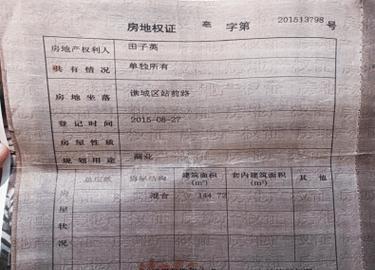 房地权证 亳 字第 201513798 号
房地产权利人 田子英
共有情况 单独所有
房地坐落 谯城区站前路
登记时间 2015-08-27
房屋性质
规划用途 商业
总层数 房屋结构 建筑面积(m²) 套内建筑面积(m²) 其他
房屋状况 混合 144.72